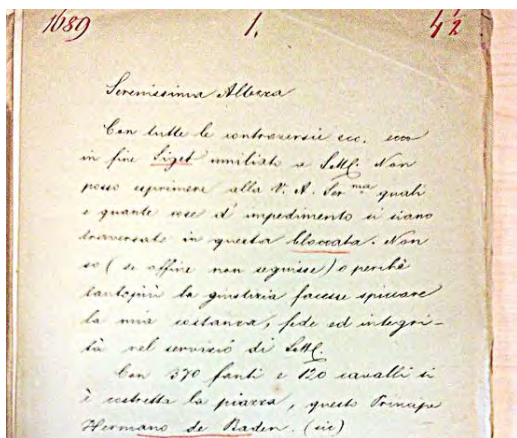 1689 1. 4 1/2
Serenissima Altezza
Con tutte le controversie ecc. ecco
in fine Siget umiliato a S.M.C. Non
posso esprimere alla V. A. Ser.ma quali
e quante cose d'impedimento si siano
traversate in questa bloccata. Non
so (se affine non seguisse) o perchè
tantopiù la giustizia facesse spiccare
la mia costanza, fede ed integri-
tà nel servizio di S.M.C.
Con 370 fanti e 120 cavalli si
è costretta la piazza, questo Principe
Hermano de Baden. (sic)